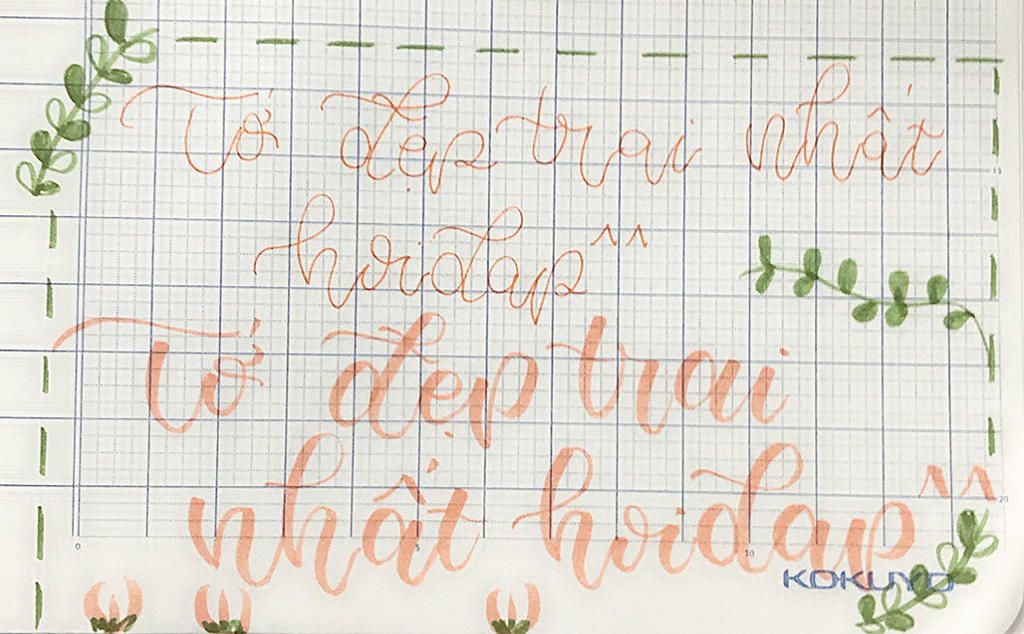 Tớ đẹp trai nhất
hoidap^^
Tớ đẹp trai
nhất hoidap^^
0 5 10
15
20
KOKUYO